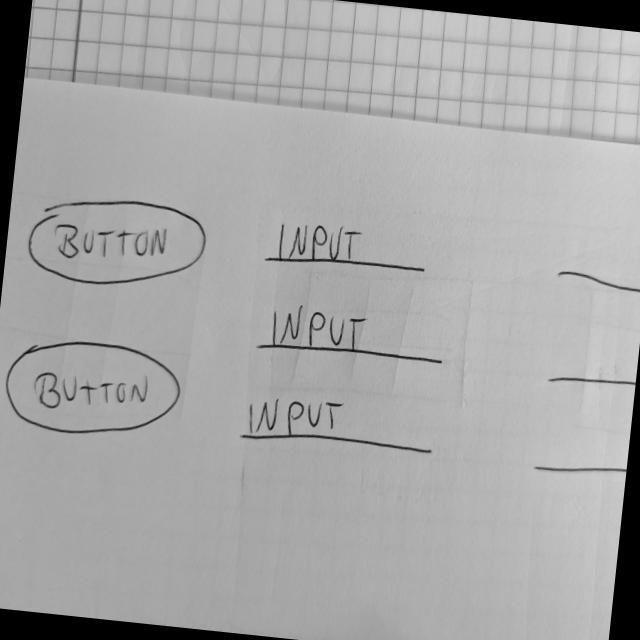 BUTTON INPUT
INPUT
BUTTON
INPUT